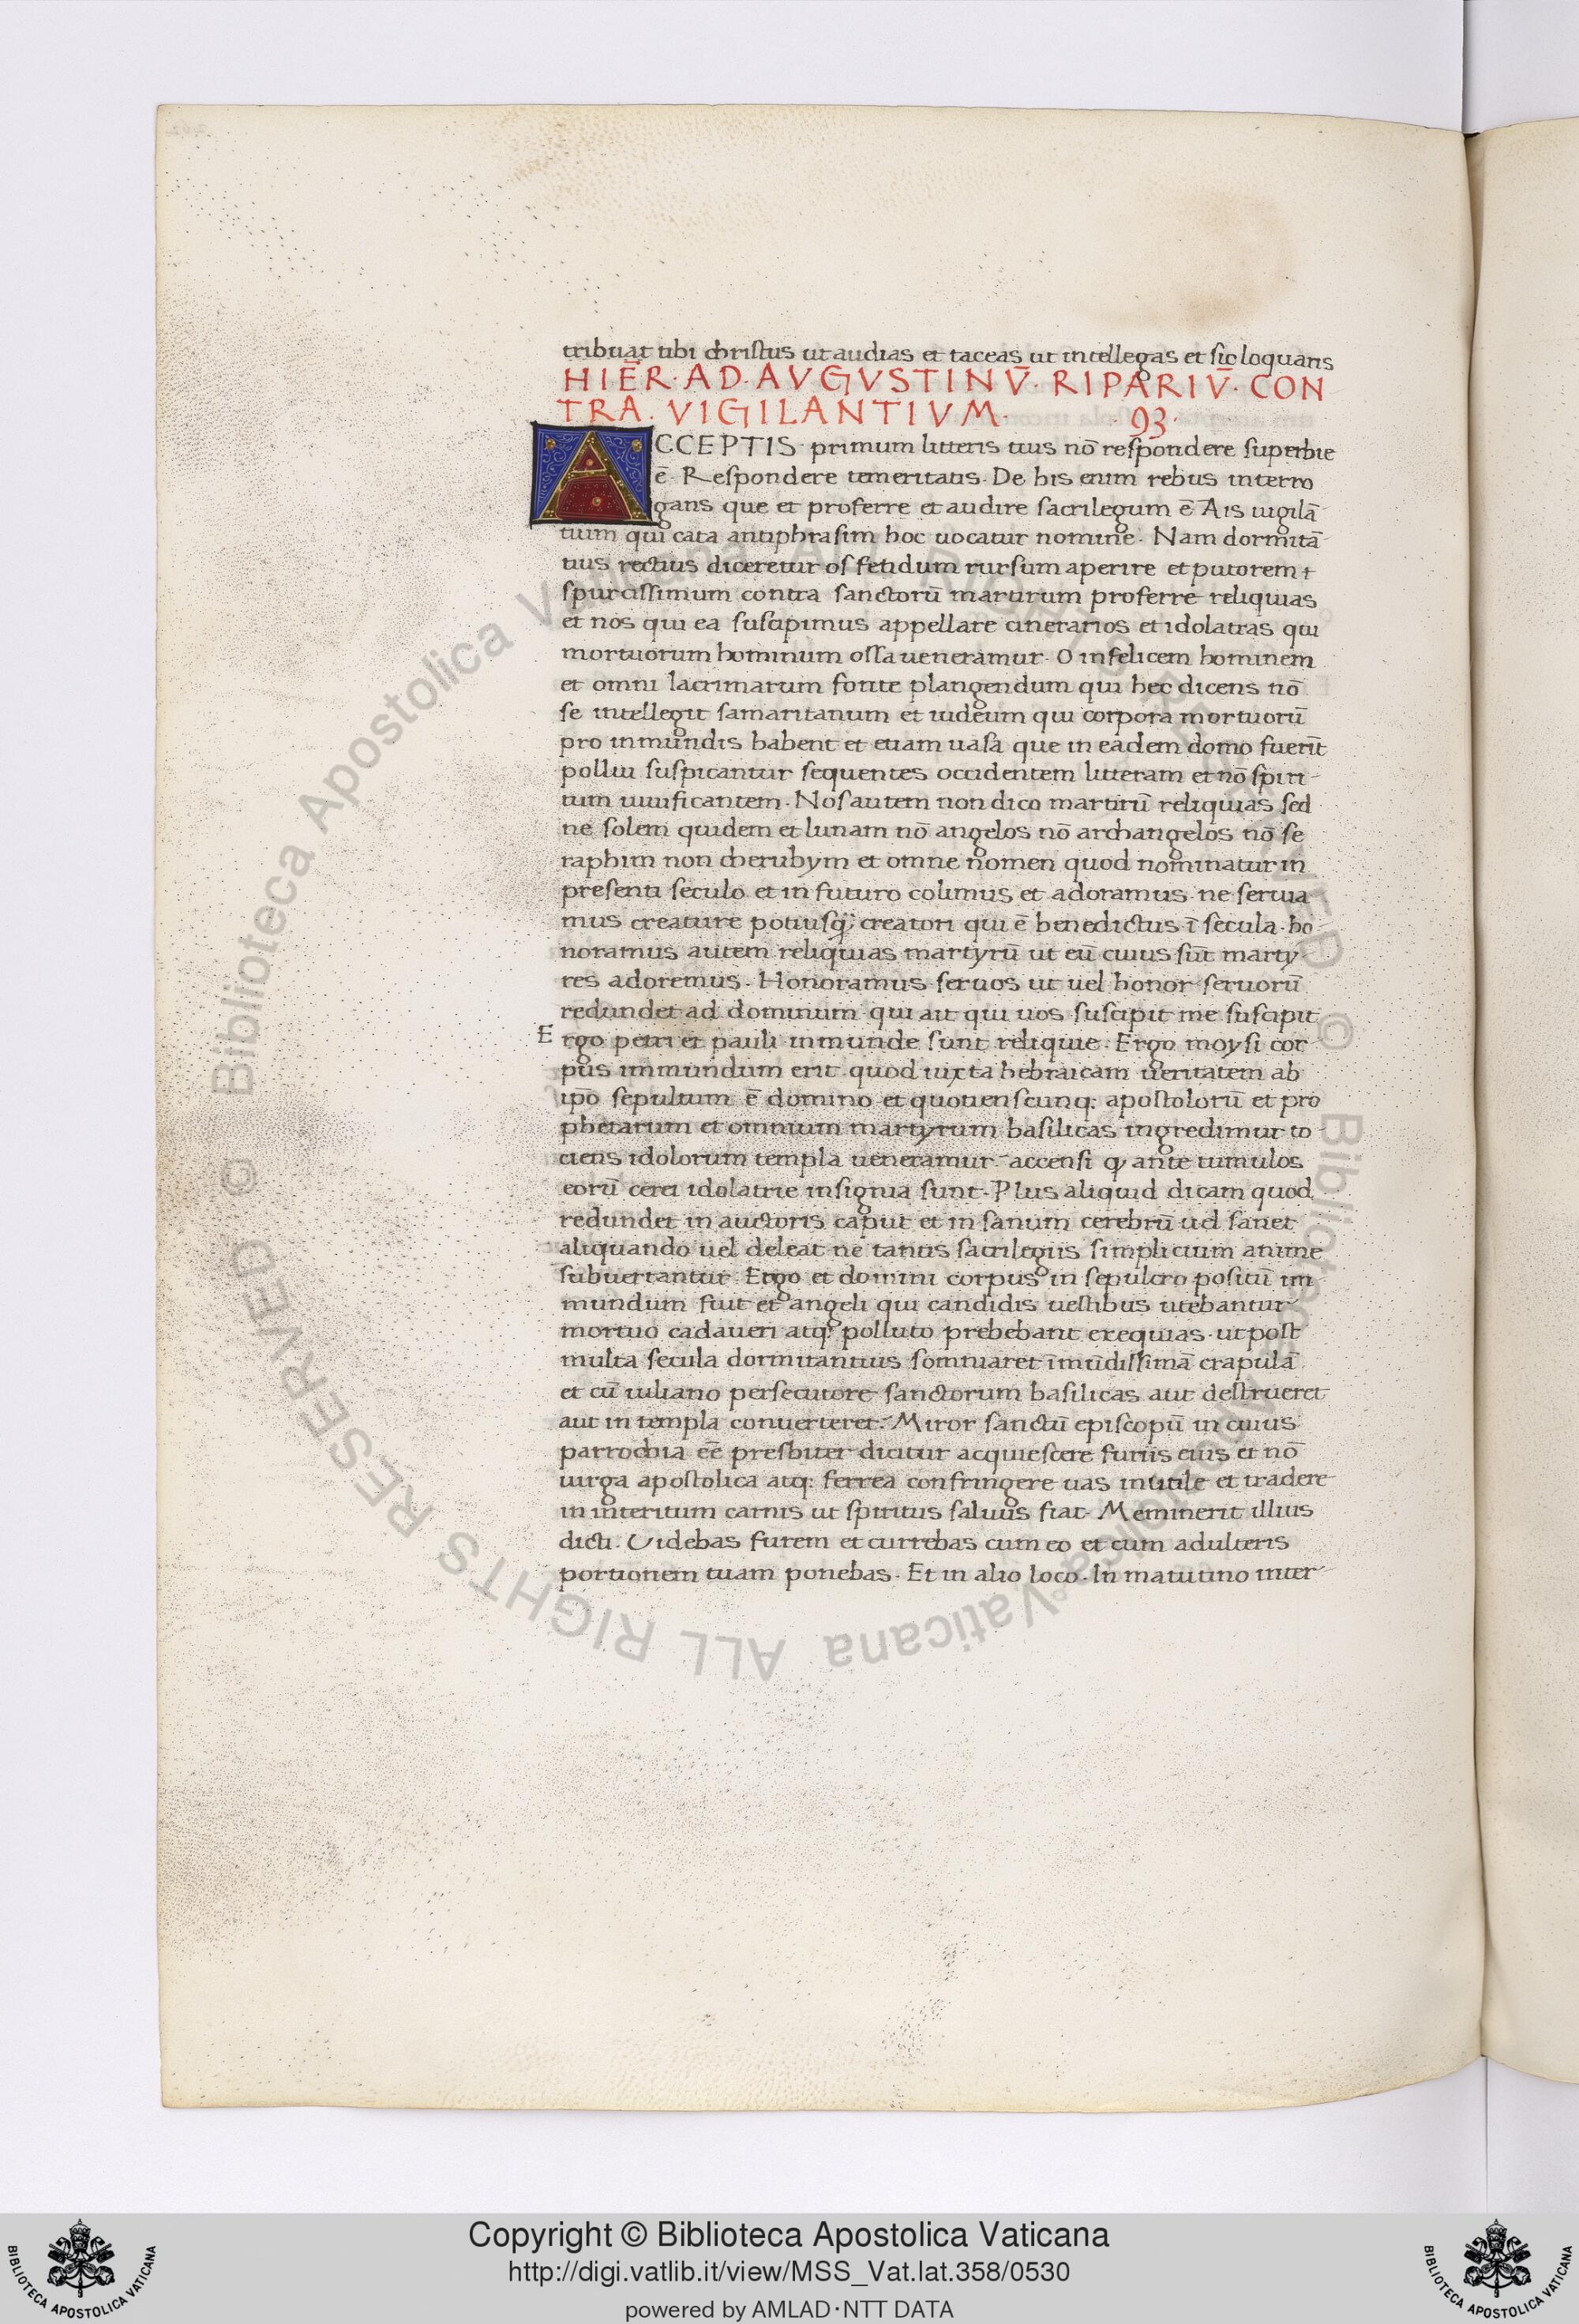 tribuat tibi christus ut audias et taceas ut intellegas et sic loquaris
HIEȒ· AD· AVGVSTINV̄· RIPARIV̄· CON
TRA· VIGILANTIVM· 93·
ACCEPTIS primum litteris tuis nō respondere superbie
ē· Respondere temeritatis· De his enim rebus interro
gans que et proferre et audire sacrilegum ē Ais uigilā
tium qui cata antiphrasim hoc uocatur nomine· Nam dormitā
tius rectius diceretur os fetidum rursum aperire et putorem
spurcissimum contra sanctorū martirum proferre reliquias
et nos qui ea suscipimus appellare cinerarios et idolatras qui
mortuorum hominum ossa ueneramur· O infelicem hominem
et omni lacrimarum fonte plangendum qui hec dicens nō
se intellegit samaritanum et iudeum qui corpora mortuorū
pro inmundis habent et etiam uasa que in eadem domo fuerīt
pollui suspicantur sequentes occidentem litteram et nō spiri
tum uiuificantem· Nos autem non dico martirū reliquias sed
ne solem quidem et lunam nō angelos nō archangelos nō se
raphim non cherubym et omne nomen quod nominatur in
presenti seculo et in futuro colimus et adoramus ne seruia
mus creature potiusq; creatori qui ē benedictus ī secula· ho
noramus autem reliquias martyrū ut eū cuius sūt marty
res adoremus· Honoramus seruos ut uel honor seruorū
redundet ad dominum qui ait qui uos suscipit me suscipit
Ergo petri et pauli inmunde sunt reliquie· Ergo moysi cor
pus immundum erit quod iuxta hebraicam ueritatem ab
ip̄o sepultum ē domino et quotienscunq: apostolorū et pro
phetarum et omnium martyrum basilicas ingredimur to
ciens idolorum templa ueneramur· accensi q, ante tumulos
eorū cerei idolatrie insignia sunt· Plus aliquid dicam quod
redundet in auctoris caput et in sanum cerebrū uel sanet
aliquando uel deleat ne tantis sacrilegiis simplicium anime
subuertantur· Ergo et domini corpus in sepulcro positū im
mundum fuit et angeli qui candidis uestibus utebantur
mortuo cadaueri atq: polluto prebebant exequias· ut post
multa secula dormitantius somniaret īmūdissimā crapulā
et cū iuliano persecutore sanctorum basilicas aut destrueret
aut in templa conuerteret· Miror sanctū episcopū in cuius
parrochia eē presbiter dicitur acquiescere furiis eius et nō
uirga apostolica atq: ferrea confringere uas inutile et tradere
in interitum carnis ut spiritus saluus fiat· Meminerit illius
dicti· Uidebas furem et currebas cum eo et cum adulteris
portionem tuam ponebas· Et in alio loco· In matutino inter
Biblioteca Apostolica Vaticana ALL RIGHTS RESERVED ©
Biblioteca Apostolica Vaticana ALL RIGHTS RESERVED ©
Copyright © Biblioteca Apostolica Vaticana
http://digi.vatlib.it/view/MSS_Vat.lat.358/0530
powered by AMLAD·NTT DATA
BIBLIOTECA APOSTOLICA VATICANA
BIBLIOTECA APOSTOLICA VATICANA